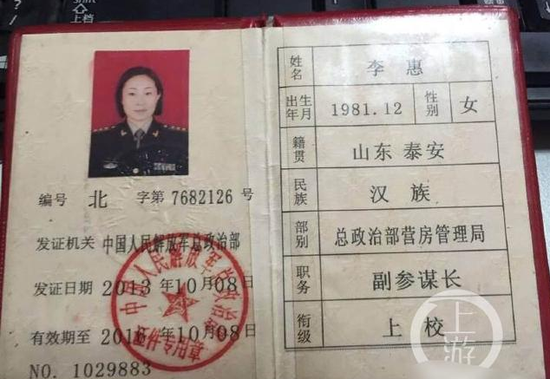 编号 北 字第7682126号
发证机关 中国人民解放军总政治部
发证日期 2013年10月08日
有效期至 10月08日
NO. 1029883
中国人民解放军总政治部
证件专用章
姓名 李惠
出生年月 1981.12 性别 女
籍贯 山东 泰安
民族 汉族
部别 总政治部营房管理局
职务 副参谋长
衔级 上校
上游